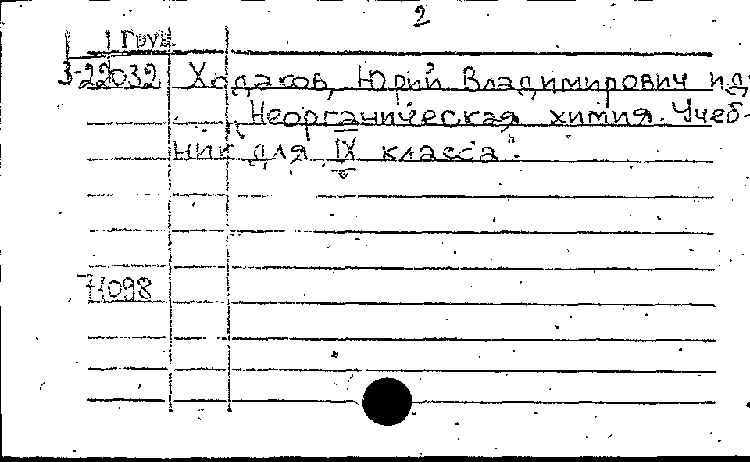 2
Груз.
3-22032 Ходаков, Юрий Владимирович и др
„Неорганическая химия. Учеб-
ник для IX класса".
71098